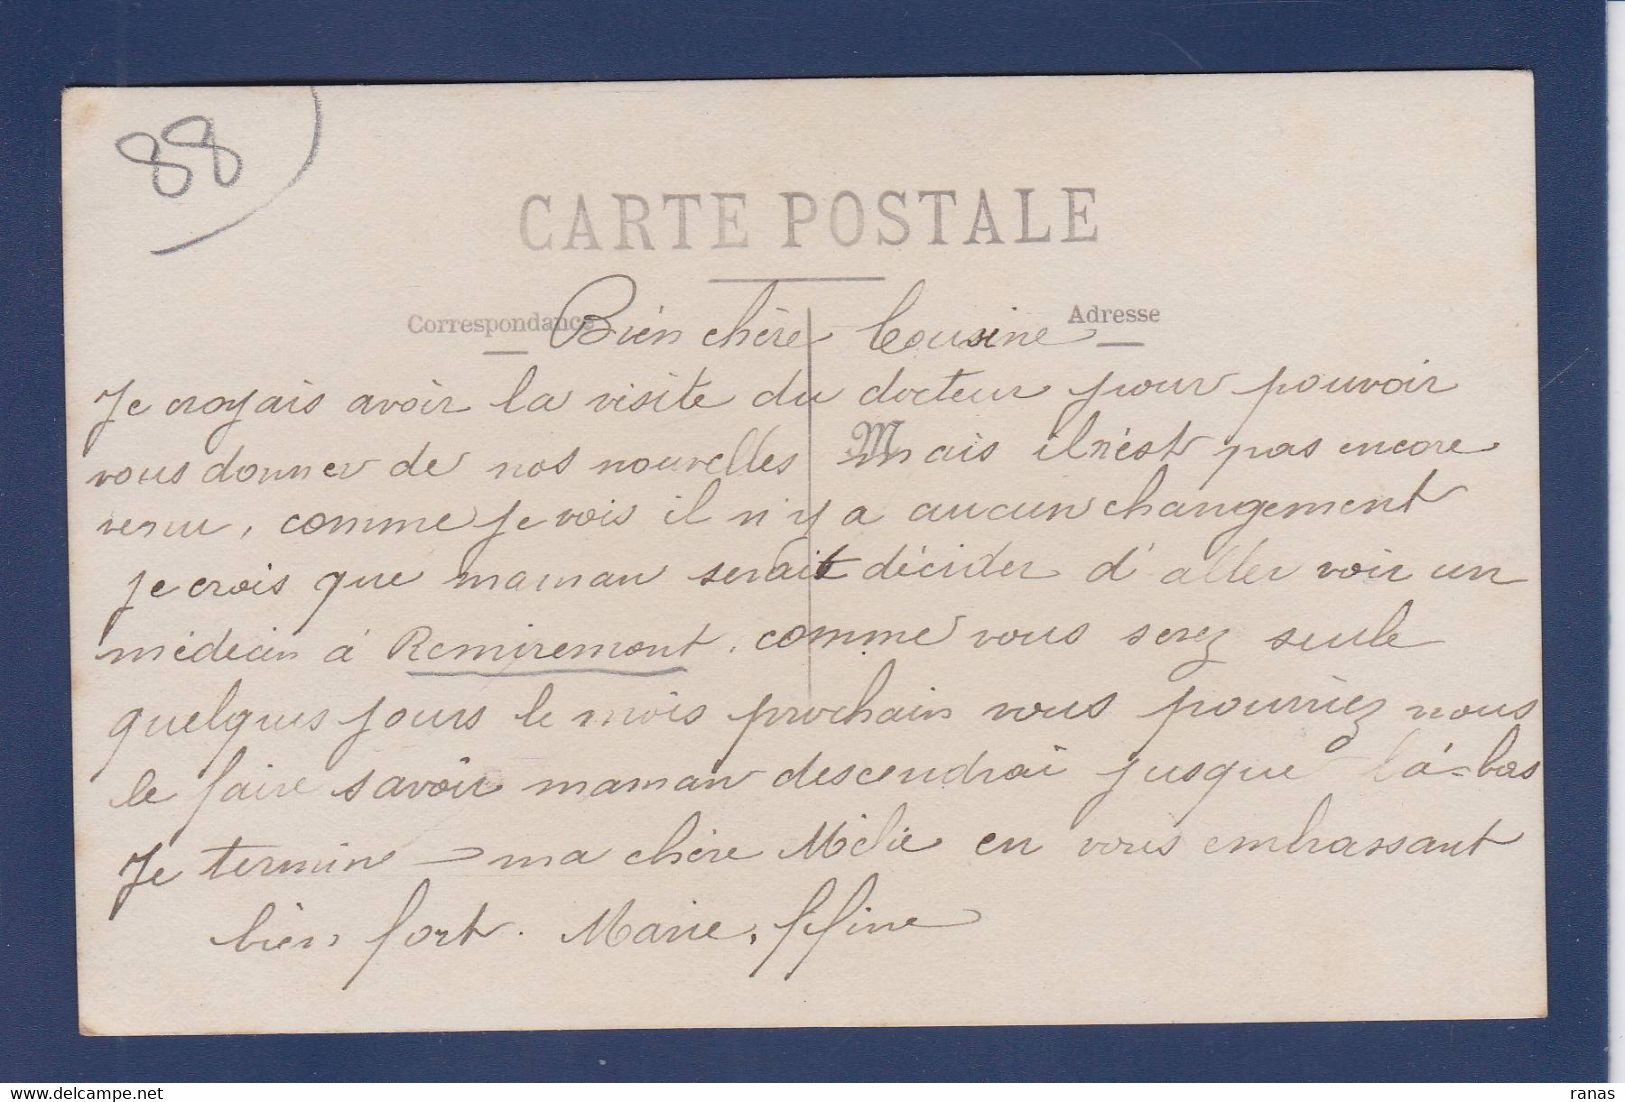 88
CARTE POSTALE
Correspondance
Adresse
Bien chère Cousine
Je croyais avoir la visite du docteur pour pouvoir
vous donner de nos nouvelles Mais il n'est pas encore
venu, comme je vois il n'y a aucun changement
je crois que maman serait décider d'aller voir un
médecin à Remiremont. comme vous serez seule
quelques jours le mois prochain vous pourriez nous
le faire savoir maman descendrai jusque là-bas
Je termine ma chère Mélie en vous embrassant
bien fort. Marie.
ranas